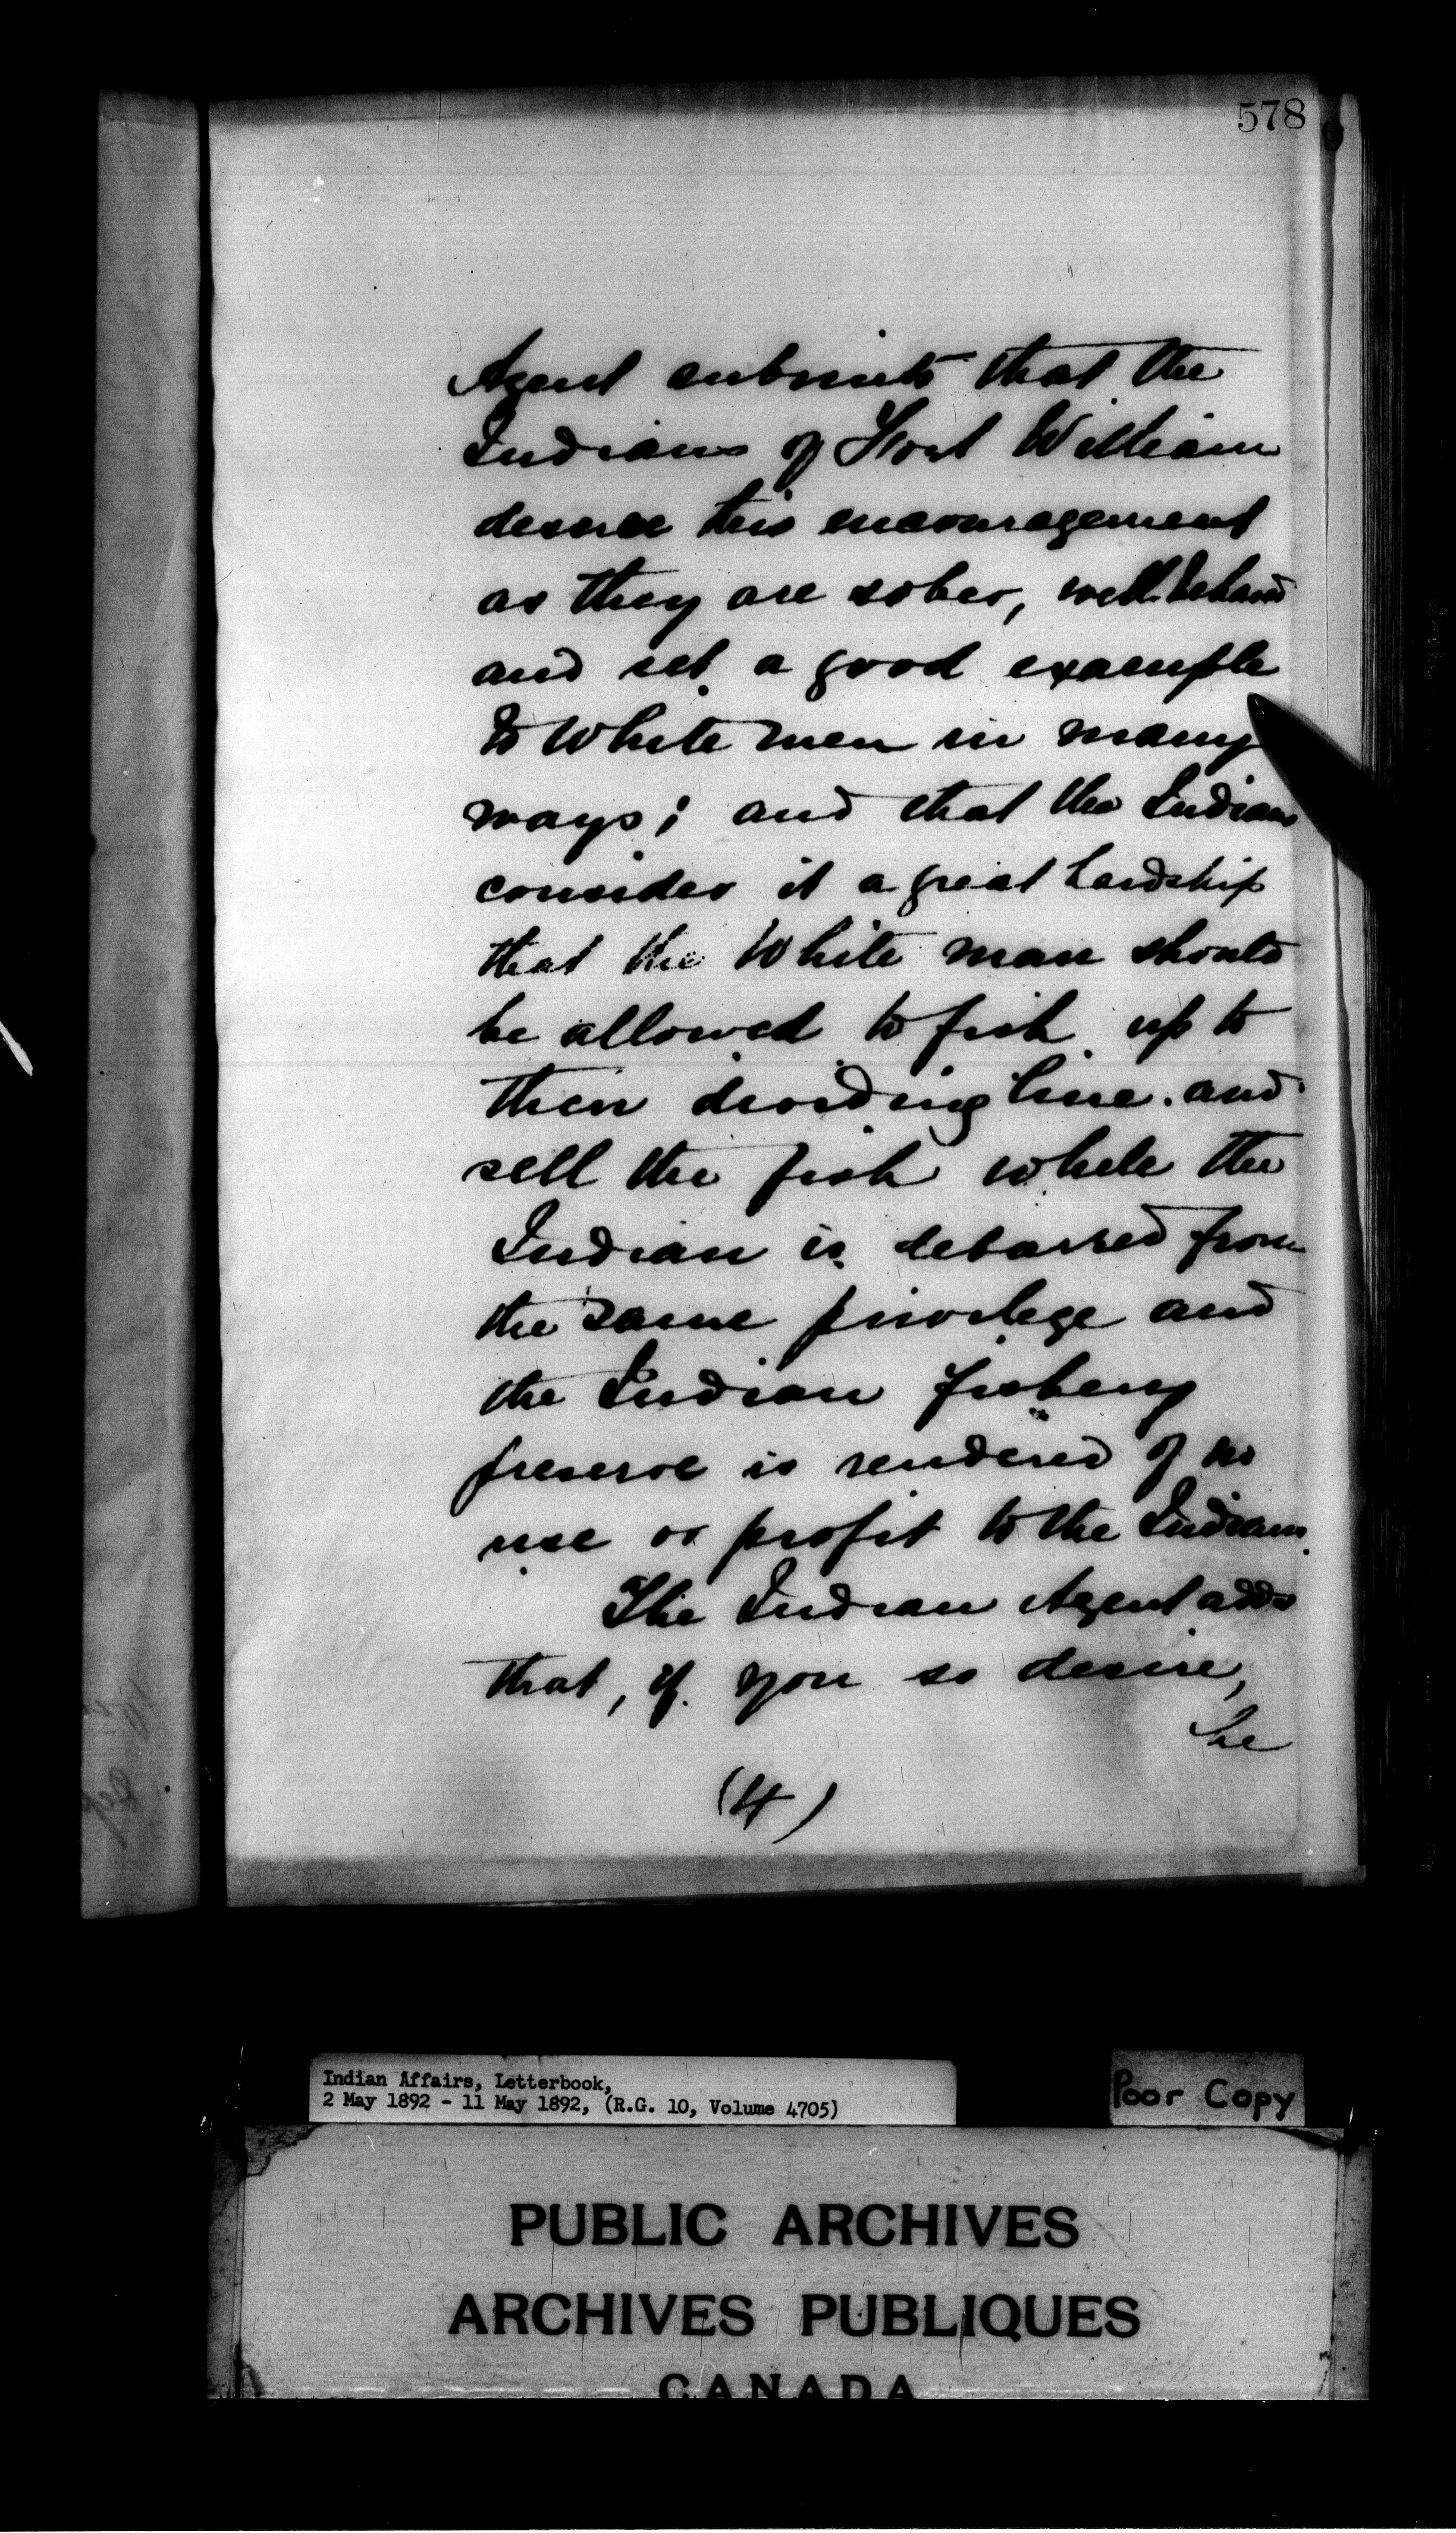 578
Agent submits that the
Indians of Fort William
deserve this encouragement
as they are sober, well behaved
and set a good example
to White men in many
ways; and that the Indians
consider it a great hardship
that the White man should
be allowed to fish up to
their dividing line and
sell the fish while the
Indian is debarred from
the same privilege and
the Indian fishery
preserve is rendered of no
use or profit to the Indians.
The Indian Agent adds
that, if you so desire,
he
(4)
Indian Affairs, Letterbook,
2 May 1892 - 11 May 1892, (R.G. 10, Volume 4705)
Poor Copy
PUBLIC ARCHIVES
ARCHIVES PUBLIQUES
CANADA